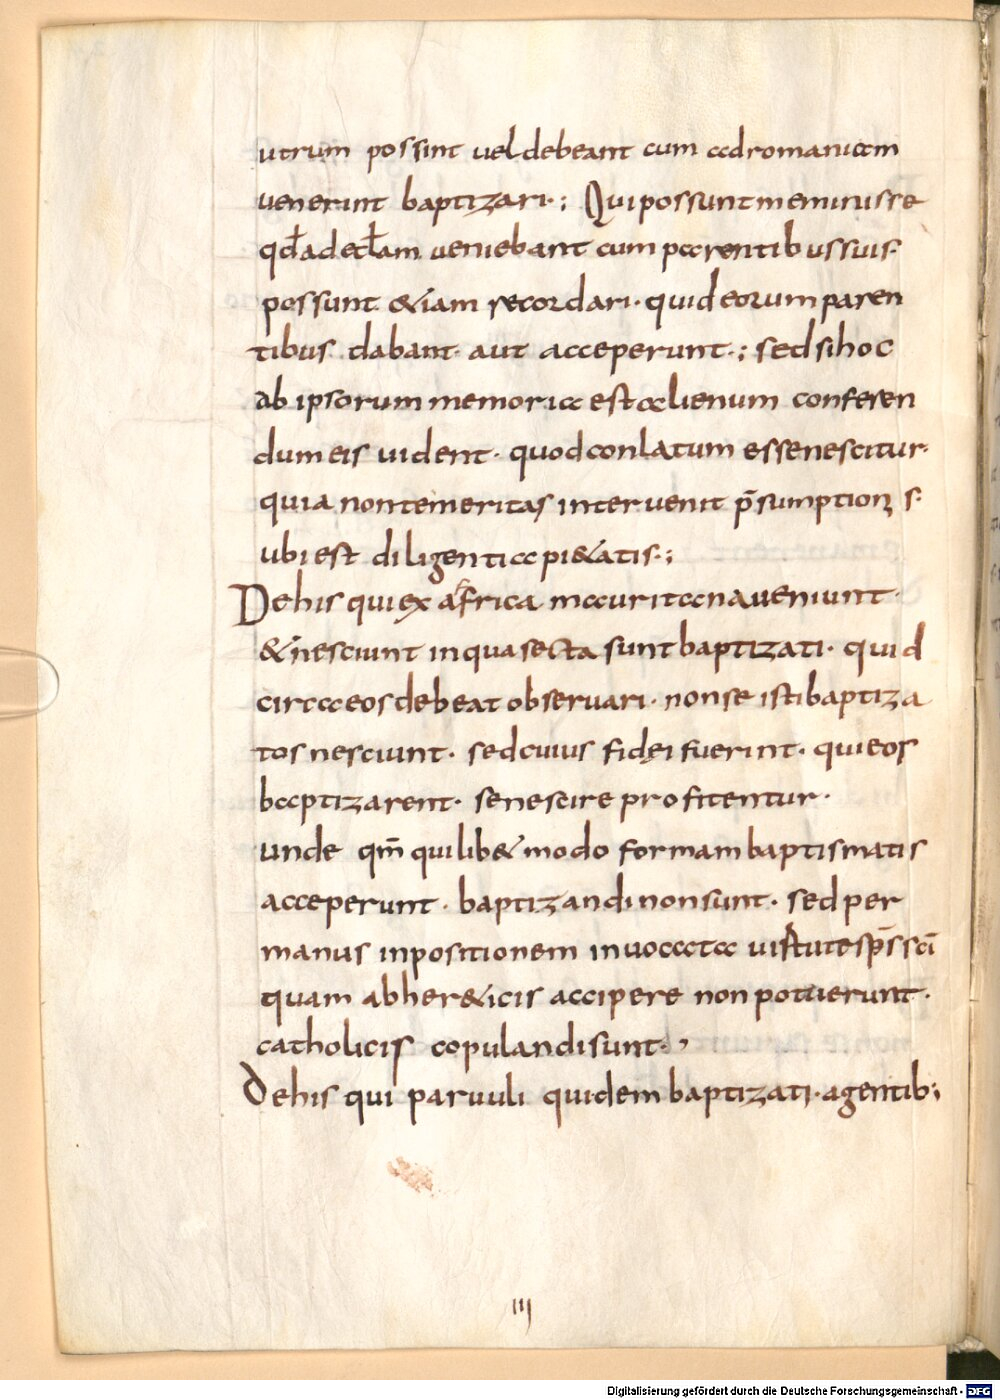 utrum possint uel debeant cum ad romaniam
uenerint baptizari·; Qui possunt meminisse
qđ ad eccłam ueniebant cum parentibus suis·
possunt &iam recordari· quid eorum paren
tibus dabant· aut acceperunt·; sed si hoc
ab ipsorum memoria est alienum conferen
dum eis uident· quod conlatum esse nescitur·
quia non temeritas interuenit p̄sumptionis·
ubi est diligentia pi&atis·;
De his qui ex africa mauritana ueniunt·
& nesciunt in qua secta sunt baptizati· quid
circa eos debeat obseruari· non se isti baptiza
tos nesciunt· sed cuius fidei fuerint· qui eos
baptizarent· se nescire profitentur·
unde qm̄ quilib& modo formam baptismatis
acceperunt· baptizandi non sunt· sed per
manus inpositionem inuocata uirtute sp̄s sc̄i
quam ab her&icis accipere non potuerunt·
catholicis copulandi sunt·,
De his qui paruuli quidem baptizati· a gentib;
III
Digitalisierung gefördert durch die Deutsche Forschungsgemeinschaft - DFG